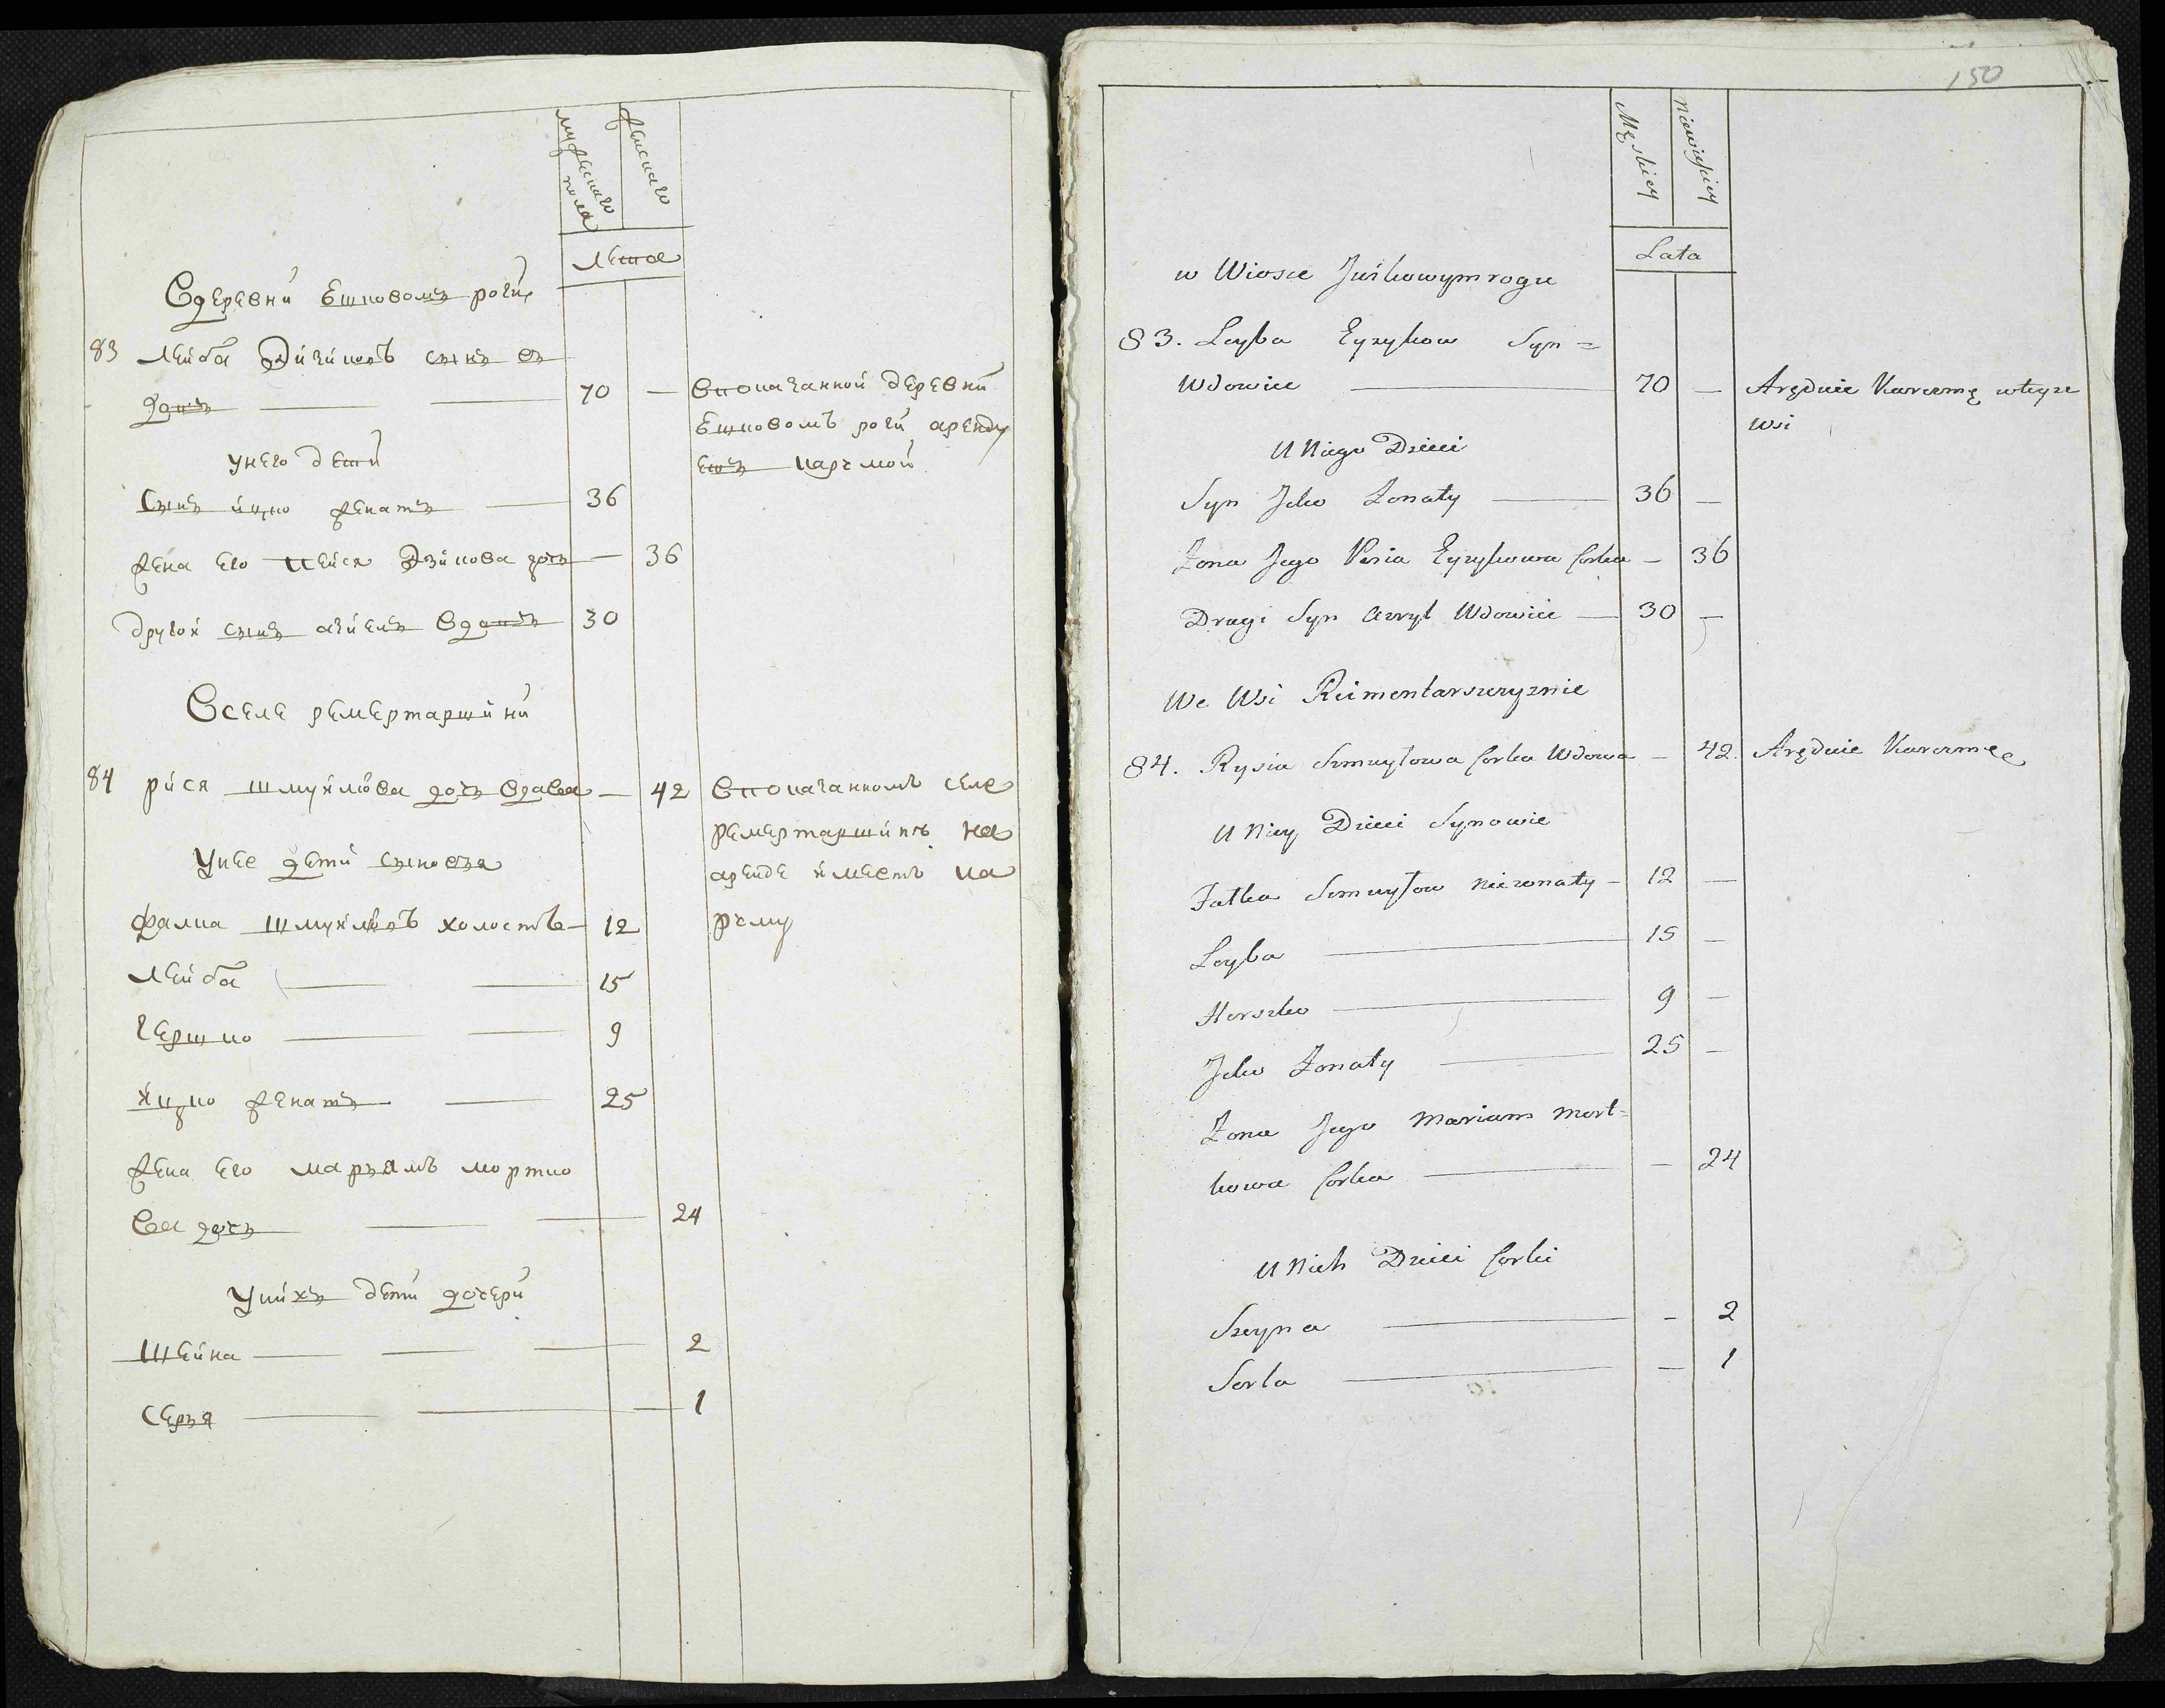 мужескаго
пола
женскаго
Лета
Вдеревни Ешковомъ роги
83 Лейба Эйзиковъ сынъ в
довъцъ 70 — Впоказанной деревни
Ешковомъ роги аренду
етъ карчмой
унего дети
Сынъ ицко женатъ 36
жена его Пейся Эзикова дочь — 36
другой сынъ азиелъ вдовецъ 30
Вселе рементаршини
84 рися шмуйлова дочь вдова — 42 Впоказанномъ селе
рементаршинъ на
аренде имеетъ ка
рчму
Унее дети сыновья
Фалка шмуйловъ холостъ — 12
Лейба 15
Гершко 9
ицко женатъ 25
жена его марьямъ мортко
ва дочь 24
Унихъ дети дочери
Шейна 2
Серля 1
150
Męskiey
Niewieskiey
Lata
w Wiosce Juśkowym rogu
83. Leyba Eyzykow Syn =
Wdowiec 70 — Aręduie Karczmę wteyże
wsi
U Niego Dzieci
Syn Icko Żonaty 36 —
Żona Jego Pesia Eyzykowa Corka — 36
Drugi Syn Azryl Wdowiec — 30 —
We Wsi Rementarszczyznie
84. Rysia Szmuylowa Corka Wdowa — 42 Aręduie Karczmę
U Niey Dzieci Synowie
Falka Szmuylow nieżonaty — 12 —
Leyba 15 —
Herszko 9 —
Icko Żonaty 25 —
Żona Jego Mariam Mort=
kowa Corka — 24
U Nich Dzieci Corki
Szeyna — 2
Serla — 1